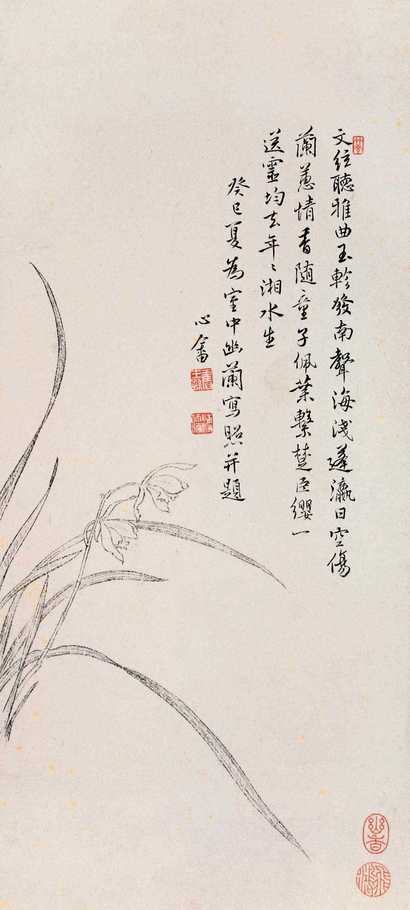 文絃聽雅曲玉軫發南聲海淺蓬瀛日空傷
蘭蕙情香隨童子佩葉繫楚臣纓一
送靈均去年〻湘水生
癸巳夏為室中幽蘭寫照并題
心畬
幽香